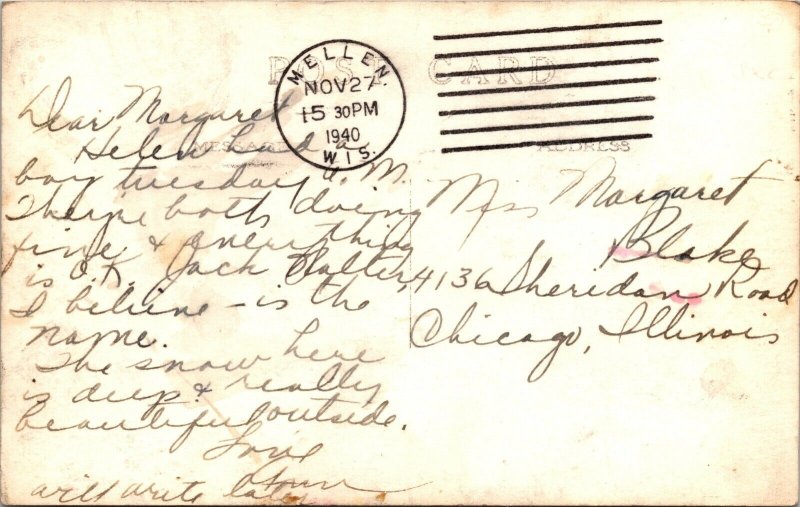 POST CARD
MELLEN.
NOV 27
15 30 PM
1940
WIS.
MESSAGE
ADDRESS
Dear Margaret
Helen had a
boy tuesday a. M.
both doing
fine & everything
is O.K. Jack Walter,
I believe - is the
name.
The snow here
is deep & really
beautiful outside.
Love
will write later
Miss Margaret
Blake
4136 Sheridan Road
Chicago, Illinois